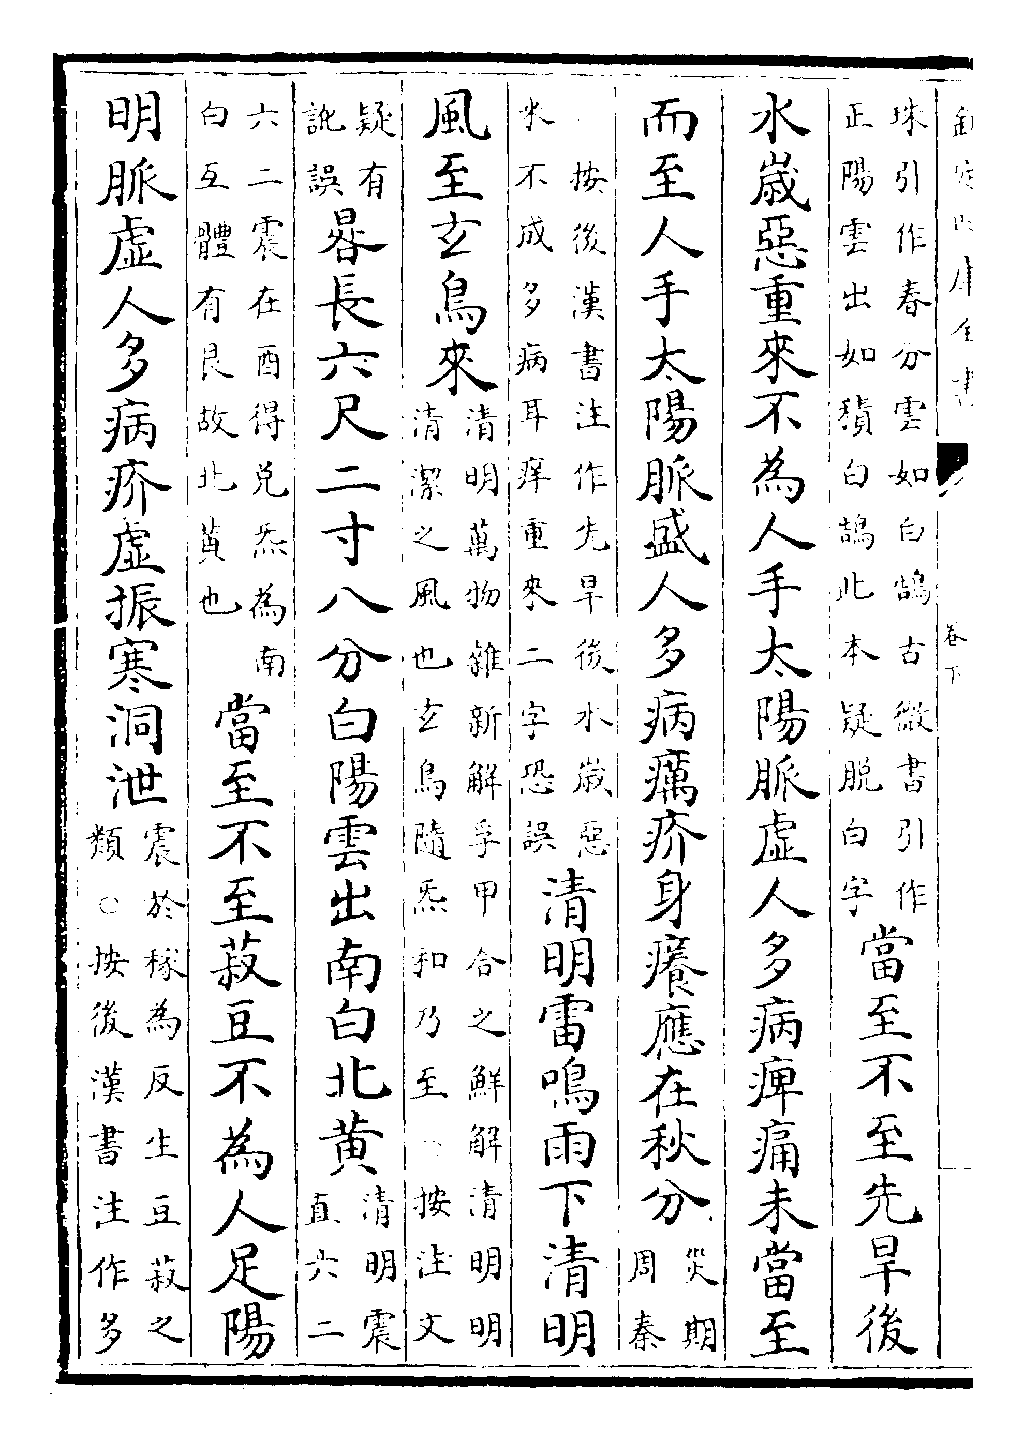 欽定四庫全書 卷下
珠引作春分雲如白鵠古微書引作
正陽雲出如積白鵠此本疑脱白字
當至不至先旱後
水歳惡重來不為人手太陽脈虚人多病痺痛未當至
而至人手太陽脈盛人多病癘疥身癢應在秋分
災期
周秦
按後漢書注作先旱後水歳惡
米不成多病耳痒重來二字恐誤
清明雷鳴雨下清明
風至玄鳥來
清明萬物雜新解孚甲合之鮮解清明明
清潔之風也玄鳥隨炁和乃至○按注文
疑有
訛誤
晷長六尺二寸八分白陽雲出南白北黄
清明震
直六二
六二震在酉得兑炁為南
白互體有艮故北黄也
當至不至菽豆不為人足陽
明脈虚人多病疥虚振寒洞泄
震於稼為反生豆菽之
類○按後漢書注作多